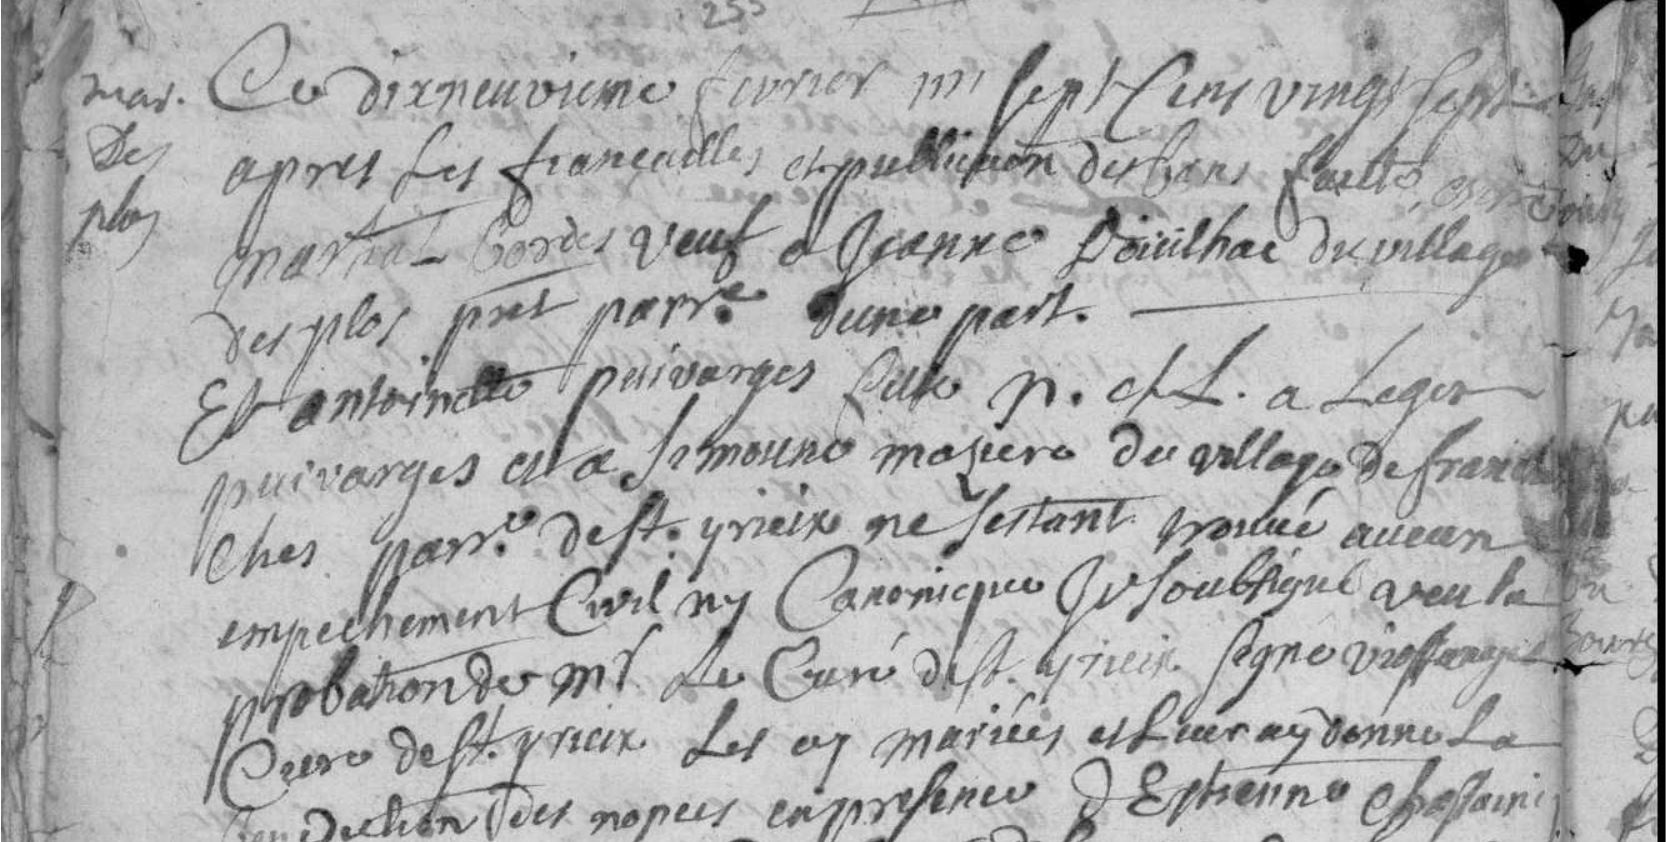 255
mar.
Des
plos
Ce dixneuvieme fevrier mil sept Cens vingt sept
apres Les fiancailles et publication des bans faitte,
martial Bordes veuf a Jeanne Douilhac du village
des plos pnt parr.e d'une part.
Et antoinette puivarges fille n. et L. a Leger
puivarges et a Simoune maziere du village de franci
ches parr.e de st. yrieix ne s'estant trouvé aucun
empechement Civil ny Canonique Je soubsigné veu la
probation de mr. Le Curé de st. yrieix signé
Curé de st. yrieix Les ay mariés et Leur ay donné La
benediction des nopces en presence d'Estienne Chastaini